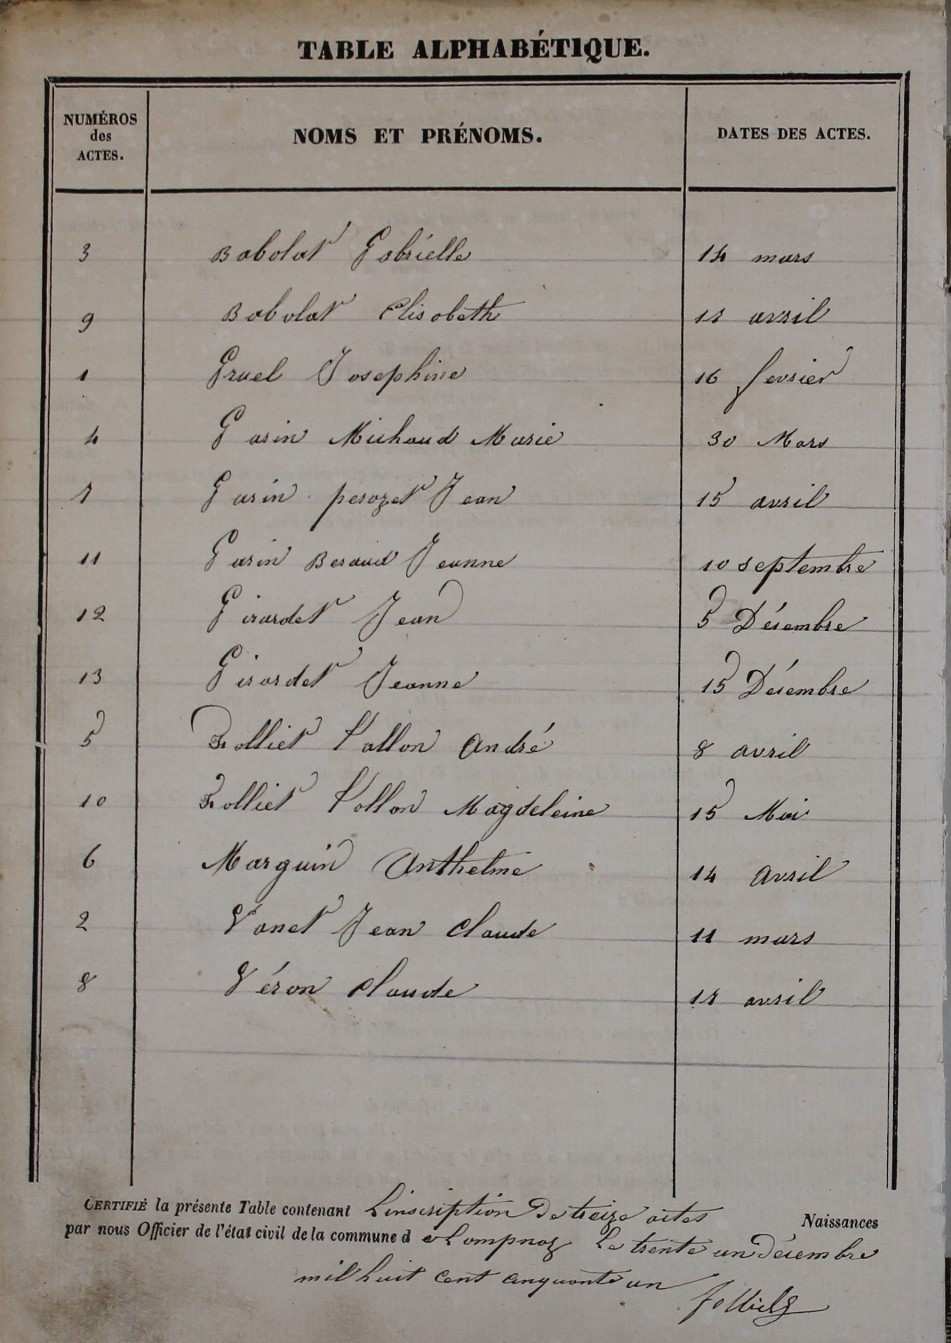 TABLE ALPHABÉTIQUE.
NUMÉROS des ACTES. NOMS ET PRÉNOMS. DATES DES ACTES.
3 Babolat Gabrielle 14 mars
9 Babolat Elisabeth avril
1 Gruel Josephine 16 fevrier
4 Garin Michaud Marie 30 Mars
7 Garin perozet Jean 15 avril
11 Garin Beraud Jeanne 10 septembre
12 Girardet Jean 5 Désembre
13 Girardet Jeanne 15 Désembre
5 Folliet Tallon André 8 avril
10 Folliet Tollon Magdeleine 15 Mai
6 Marguin Anthelme 14 avril
2 Vanet Jean Claude 11 mars
8 Véron Claude avril
CERTIFIÉ la présente Table contenant L'inscription De treize actes Naissances
par nous Officier de l'état civil de la commune d e Lompnaz Le trente un Désembre
mil huit cent cinquante un